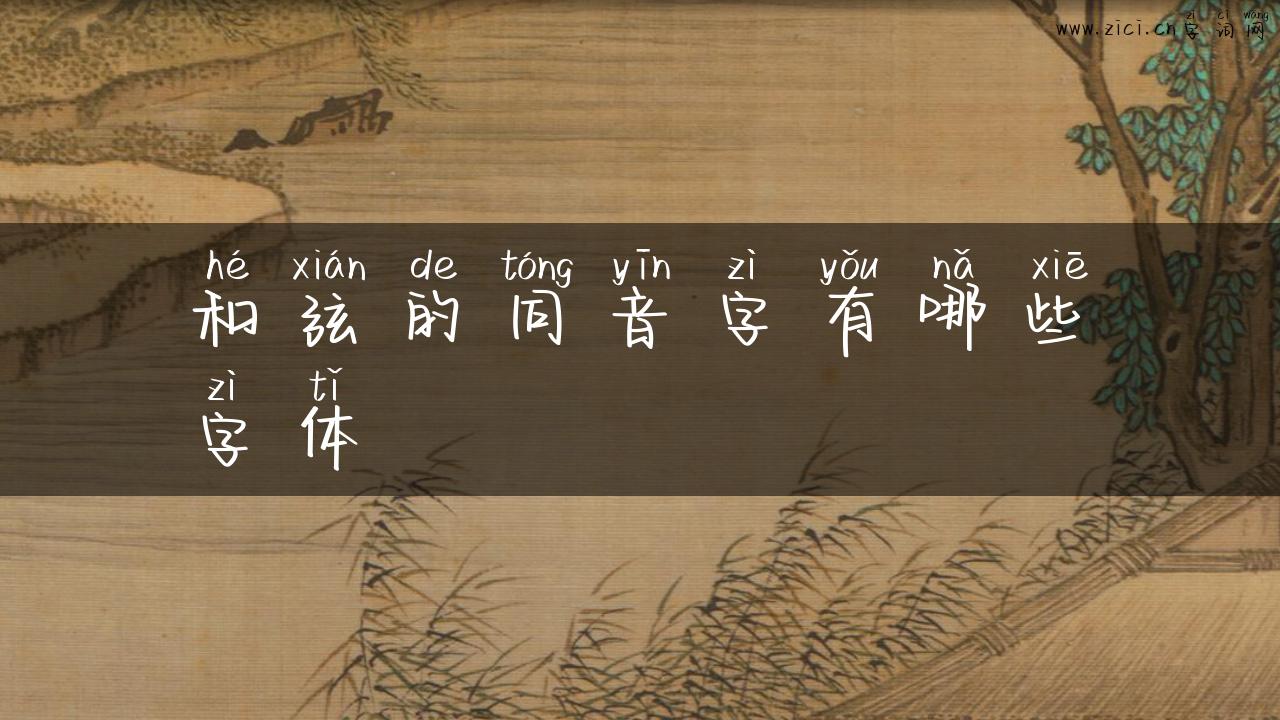 zì cí wǎng
www.zici.cn字词网
hé xián de tóng yīn zì yǒu nǎ xiē
和弦的同音字有哪些
zì tǐ
字体